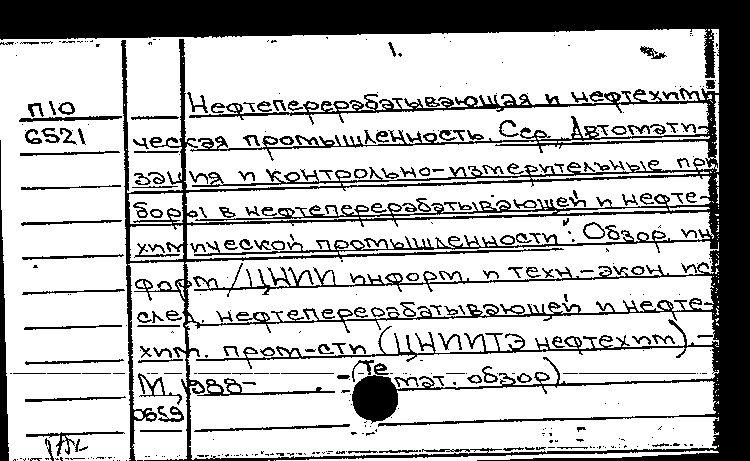 1.
П10 Нефтеперерабатывающая и нефтехими-
6521 ческая промышленность. Сер. „Автомати-
зация и контрольно-измерительные при
боры в нефтеперерабатывающей и нефте-
химической промышленности": Обзор. ин
форм / ЦНИИ информ. и техн.-экон. ис
след. нефтеперерабатывающей и нефте-
хим. пром-сти (ЦНИИТЭнефтехим). -
М., 1988- . - (Те мат. обзор).
0659